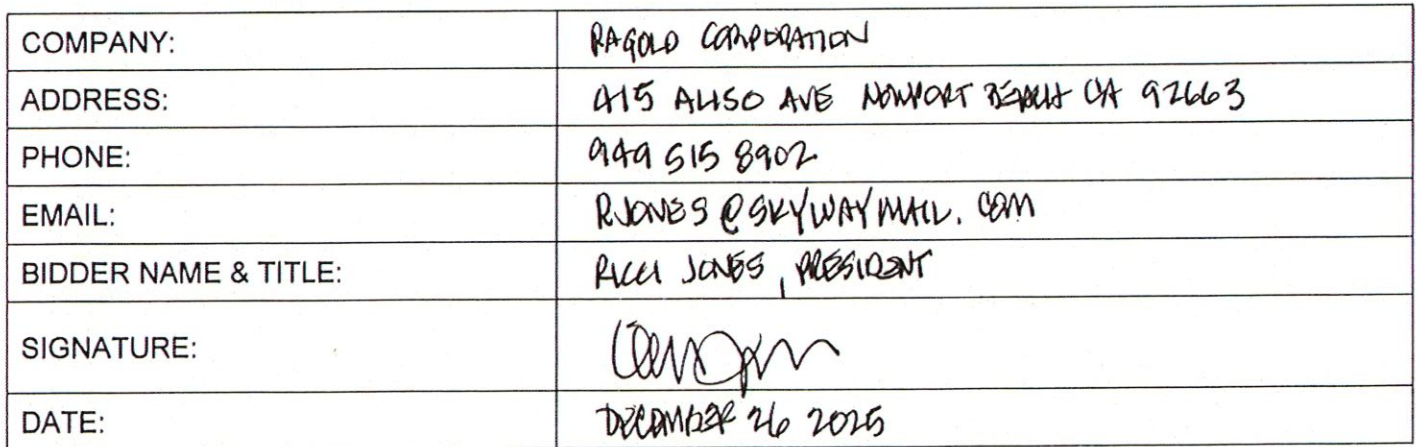 COMPANY: RAGOLD CORPORATION
ADDRESS: 415 ALISO AVE NEWPORT BEACH CA 92663
PHONE: 949 515 8902
EMAIL: RJONES@SKYWAYMAIL.COM
BIDDER NAME & TITLE: RICCI JONES, PRESIDENT
SIGNATURE:
DATE: DECEMBER 26 2025